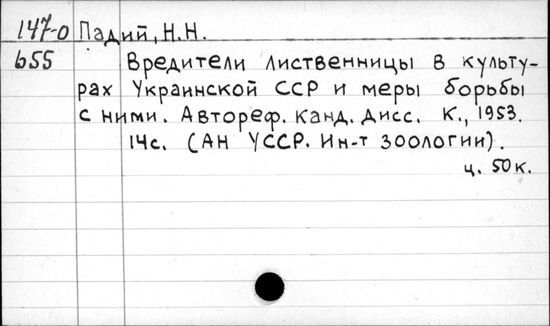 147-0 Падий, Н.Н.
655 Вредители лиственницы в культу-
рах Украинской ССР и меры борьбы
с ними. Автореф. канд. дисс. К., 1953.
14с. (АН УССР. Ин-т зоологии).
ц. 50к.